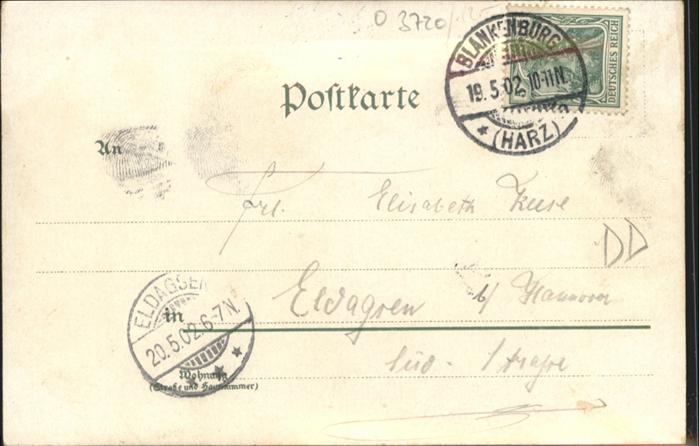 O 3720/
BLANKENBURG
19.5.02.10-11N.
* (HARZ)
DEUTSCHES REICH
Postkarte
An
Frl. Elisabeth
DD
Eldagsen b/ Hannover
ELDAGSEN
20.5.02.6-7N.
in
Süd-Straße
Wohnung
(Straße und Hausnummer)